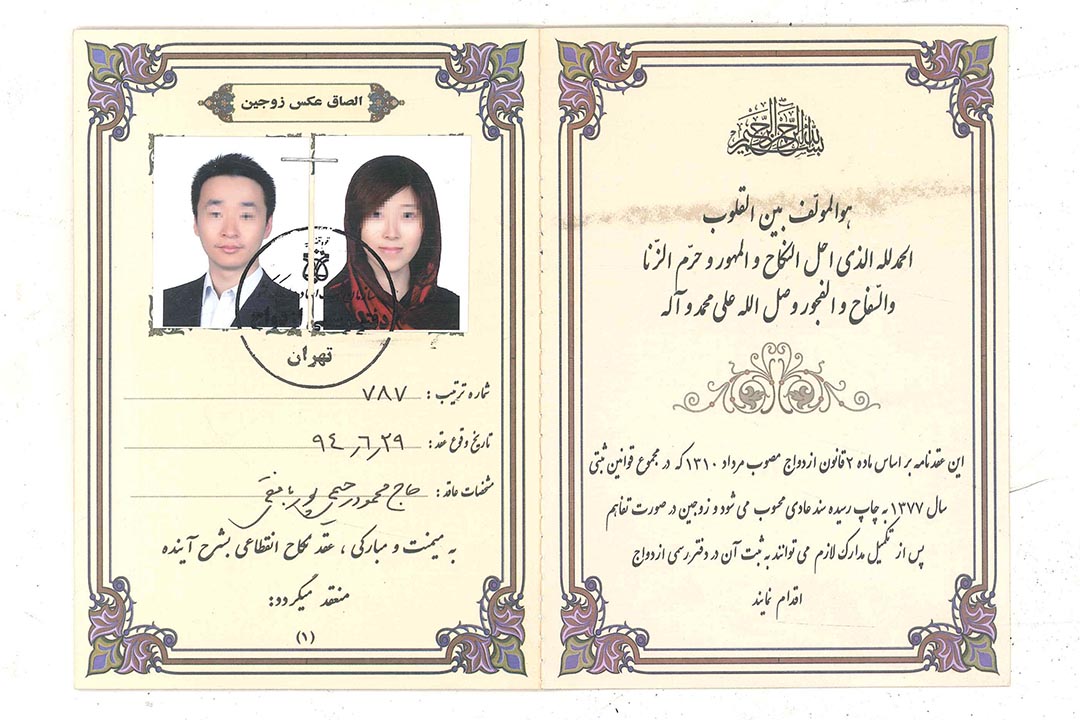 بسم الله الرحمن الرحیم
هو المولّف بین القلوب
الحمدلله الذی احل النکاح و المهور و حرّم الزّنا
والسّفاح و الفجور و صل الله علی محمد و آله
این عقدنامه بر اساس ماده ۲ قانون ازدواج مصوب مرداد ۱۳۱۰ که در مجموع قوانین ثبتی
سال ۱۳۷۷ به چاپ رسیده سند عادی محسوب می شود و زوجین در صورت تفاهم
پس از تکمیل مدارک لازم می توانند به ثبت آن در دفتر رسمی ازدواج
اقدام نمایند
الصاق عکس زوجین
تهران
شماره ترتیب : ۷۸۷
تاریخ وقوع عقد : ۹۴٫۶٫۲۹
مشخصات عاقد : حاج محمود رحیمی پور
به میمنت و مبارکی ، عقد نکاح انقطاعی بشرح آینده
منعقد میگردد:
(۱)